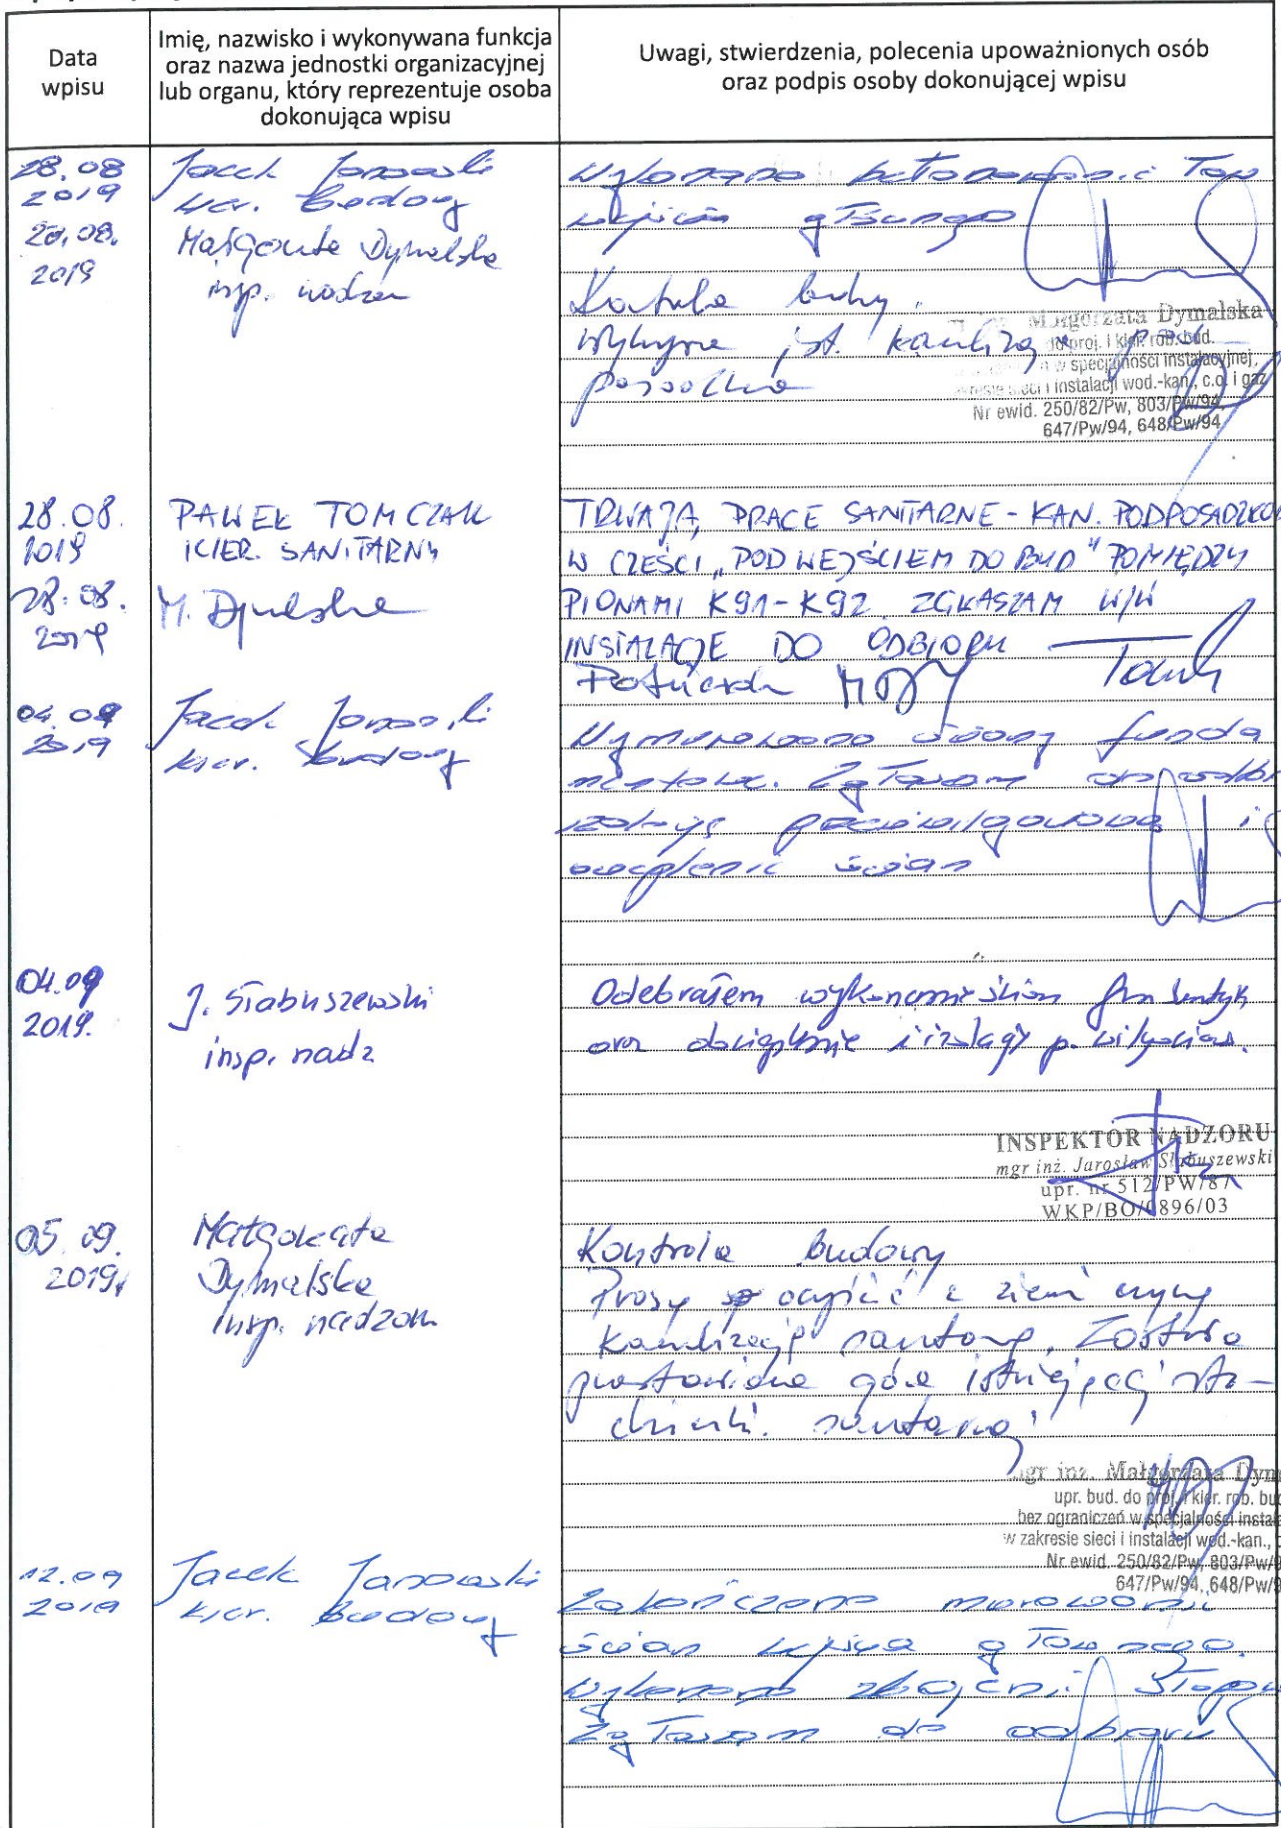 Data
wpisu
Imię, nazwisko i wykonywana funkcja
oraz nazwa jednostki organizacyjnej
lub organu, który reprezentuje osoba
dokonująca wpisu
Uwagi, stwierdzenia, polecenia upoważnionych osób
oraz podpis osoby dokonującej wpisu
28.08
2019
Jacek
kier. budowy
Wykonano betonowanie Ław
wejścia głównego
28.08.
2019
Małgorzata Dymalska
insp. nadzoru
Kontrola budowy.
Małgorzata Dymalska
do proj. i kier. rob. bud.
w specjalności instalacyjnej,
zakresie sieci i instalacji wod.-kan., c.o. i gaz
Nr ewid. 250/82/Pw, 803/Pw/94,
647/Pw/94, 648/Pw/94
28.08.
2019
PAWEŁ TOMCZAK
KIER. SANITARNY
TRWAJĄ PRACE SANITARNE - KAN. PODPOSADZKOW
W CZĘŚCI „POD WEJŚCIEM DO BUD" POMIĘDZY
PIONAMI K91-K92 ZGŁASZAM W/W
INSTALACJE DO ODBIORU
28.08.
2019
M. Dymalska
04.09
2019
Jacek
kier. budowy
Wymurowano ściany funda
mentowe. Zgłaszam do odbi
izolację przeciwwilgociową i
ocieplenie ścian
04.09
2019.
J. Słabuszewski
insp. nadz
Odebrałem wykonanie ścian
oraz i izolacji p.
INSPEKTOR NADZORU
mgr inż. Jarosław Słabuszewski
upr. nr 512/PW/87
WKP/BO/0896/03
05.09.
2019r
Małgorzata
Dymalska
insp. nadzoru
Kontrola budowy
Proszę z ziemi
kanalizację sanitarną. Została
góra istniejącej stu-
dzienki sanitarnej
mgr inż. Małgorzata Dym
upr. bud. do proj. i kier. rob. bud
bez ograniczeń w specjalności instala
w zakresie sieci i instalacji wod.-kan., c
Nr ewid. 250/82/Pw, 803/Pw/9
647/Pw/94, 648/Pw/9
12.09
2019
Jacek
kier. budowy
Zakończono murowanie
ścian wejścia głównego.
Wykonano zbrojenie Stropu
Zgłaszam do odbioru